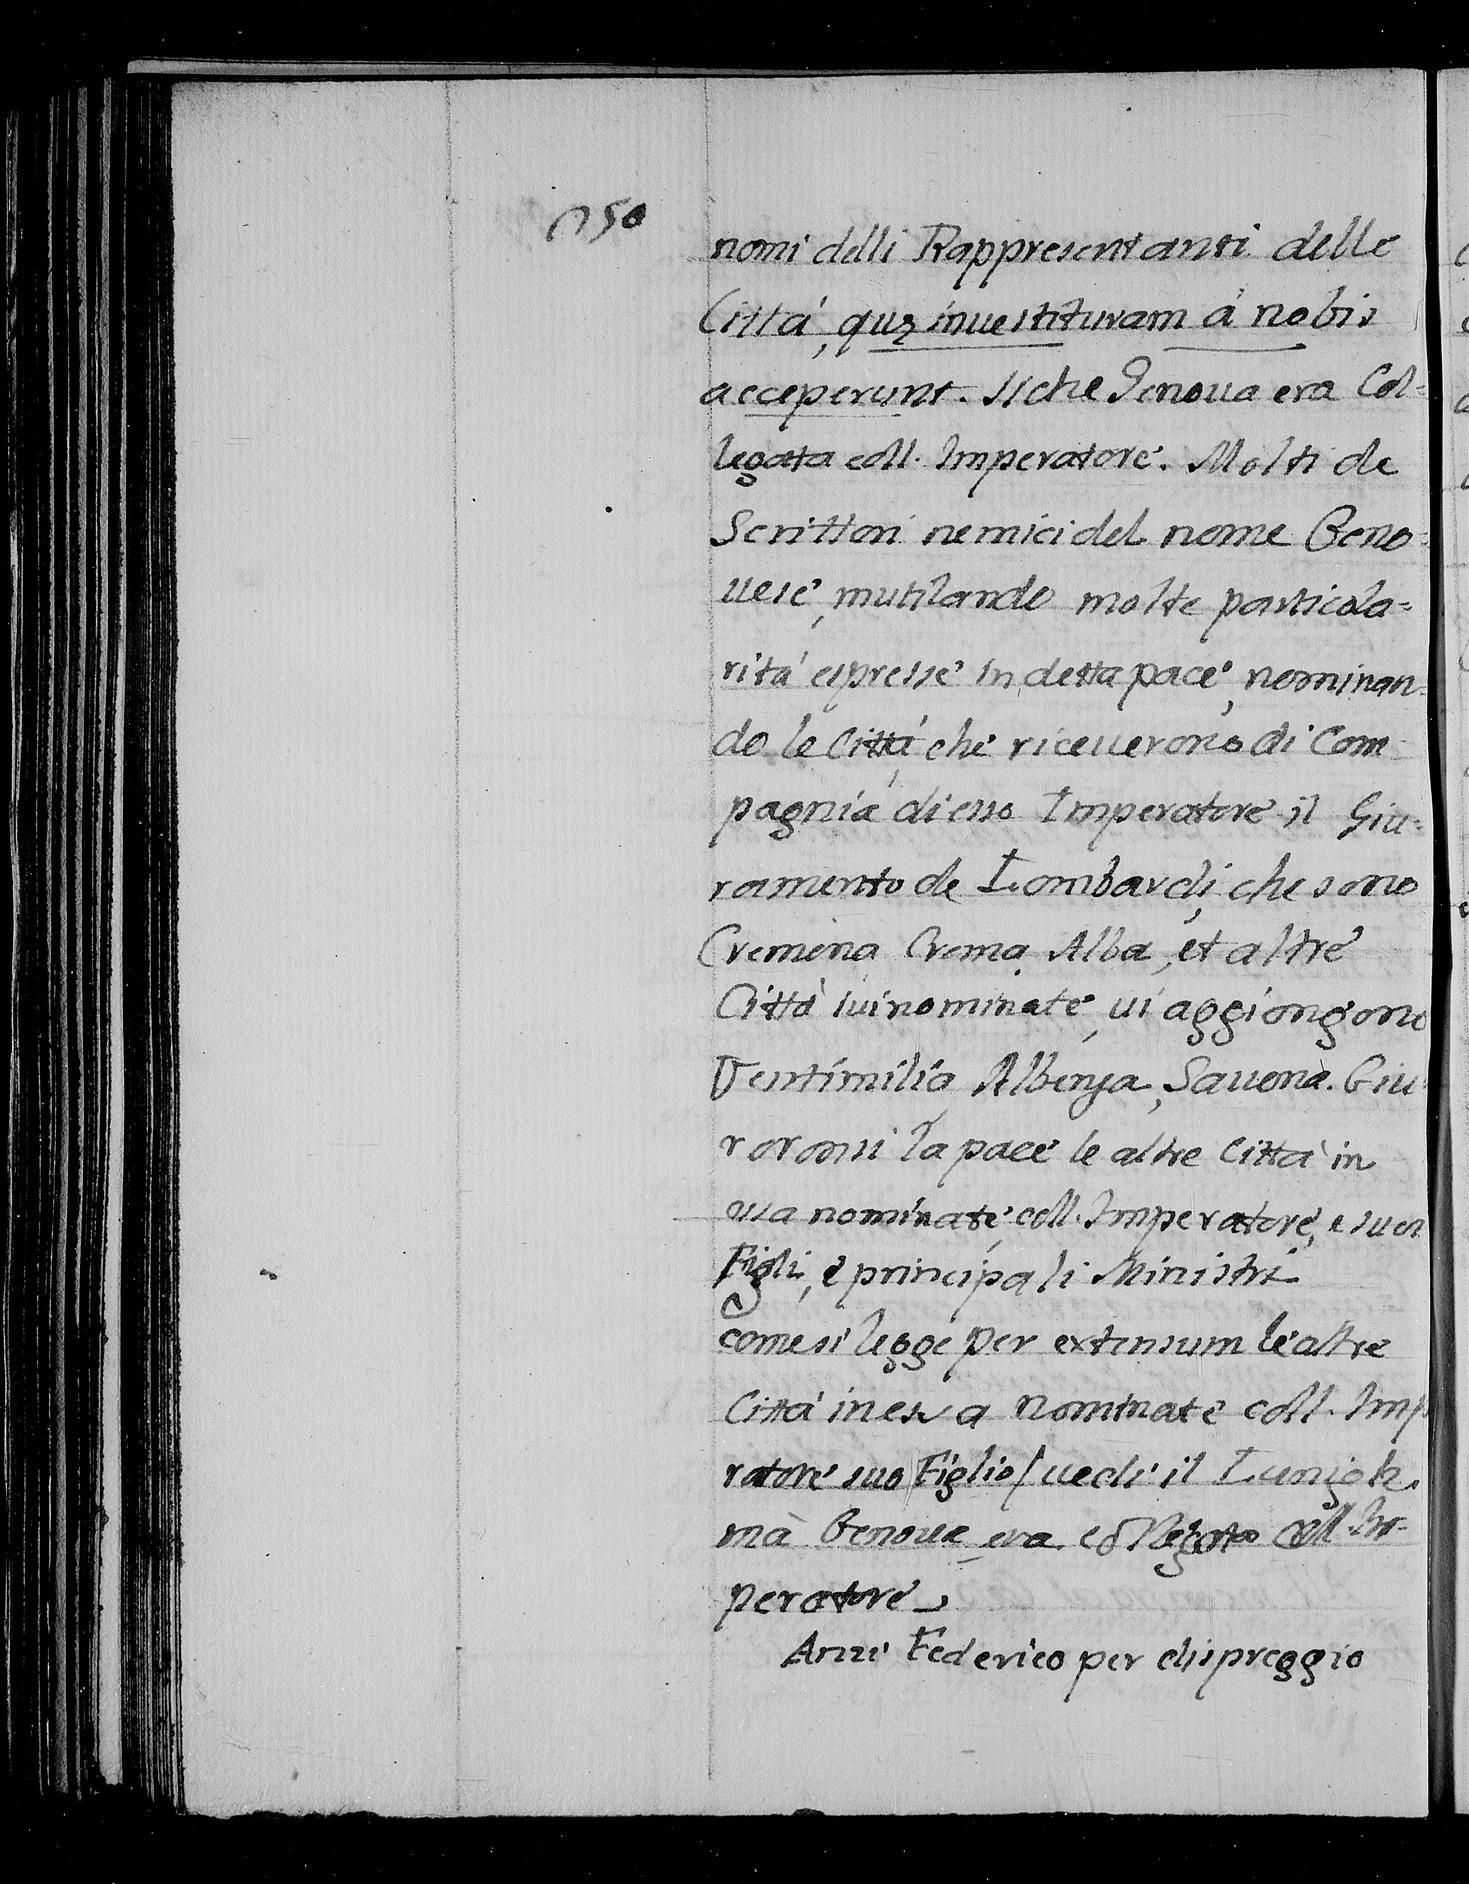 n 50
nomi delli Rappresentanti delle
Cittá, quę inuestituram á nobis
acceperunt. Siche Genoua era Col=
legata coll. Imperatore. Molti de
Scrittori nemici del nome Geno=
uese, mutilando molte particola=
ritá espresse in detta pace, nominan=
do le Cittá che riceuerono di Com
pagnia di esso Imperatore il Giu=
ramento de Lombardi, che sono
Cremona Crema, Alba, et altre
Cittá iui nominate, ui aggiongono
Ventimilia Albenga, Sauona. Giu
rorono la pace le altre Cittá in
nominate, coll. Imperatore, e suoi
Figli, e principali Ministri
come si legge per extensum le altre
Cittá in essa nominate coll. Imp
ratore suo Figlio / uedi il Lunigh.
má Genoua era Collegata coll. Im=
peratore
Anzi Federico per dispreggio